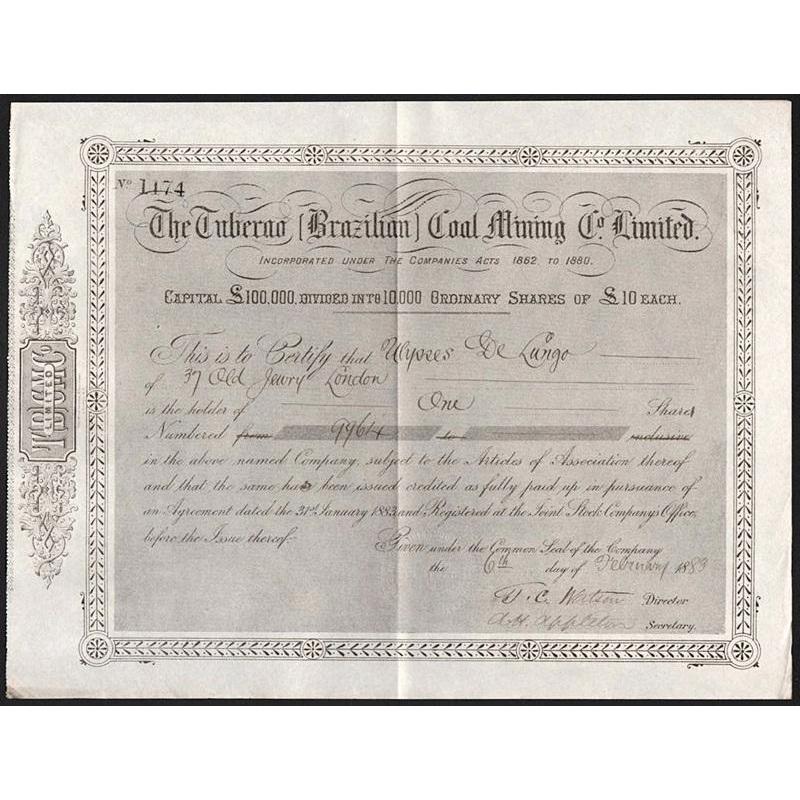 Nº 1174
The Tuberao (Brazilian) Coal Mining Cº Limited.
INCORPORATED UNDER THE COMPANIES ACTS 1862 TO 1880.
CAPITAL £100,000, DIVIDED INTO 10,000 ORDINARY SHARES OF £10 EACH.
This is to Certify that Ulysses De Lungo
of 37 Old Jewry London
is the holder of One Share
Numbered from 9964 to inclusive
in the above named Company, subject to the Articles of Association thereof
and that the same has been issued credited as fully paid up in pursuance of
an Agreement dated the 31st January 1883 and Registered at the Joint Stock Companys Office,
before the Issue thereof.
Given under the Common Seal of the Company
the 6th day of February 1883
C. Watson Director
A.H. Appleton Secretary.
T.B.C.M.Cº
LIMITED